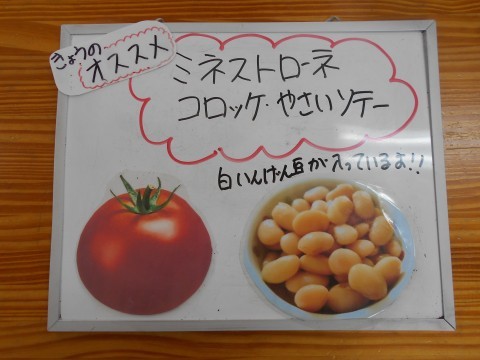 きょうの
オススメ
ミネストローネ
コロッケ・やさいソテー
白いんげん豆が入っているよ!!